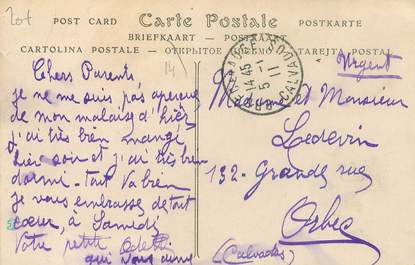 Lot
POST CARD Carte Postale POSTKARTE
BRIEFKAART - POSTKAART
CARTOLINA POSTALE - ОТКРЫТОЕ TARJETA POSTAL
14
CALVADOS
14 45
5 - 1
11
Chers Parents
je ne me suis pas aperçue
de mon malaise d'hier
j'ai très bien mangé
hier soir et j'ai très bien
dormi - tout va bien
je vous embrasse de tout
cœur, à Samedi
Votre petite Odette
qui vous aime
Urgent
Madame et Monsieur
Ledevin
132 - Grande rue
Orbec
(Calvados)